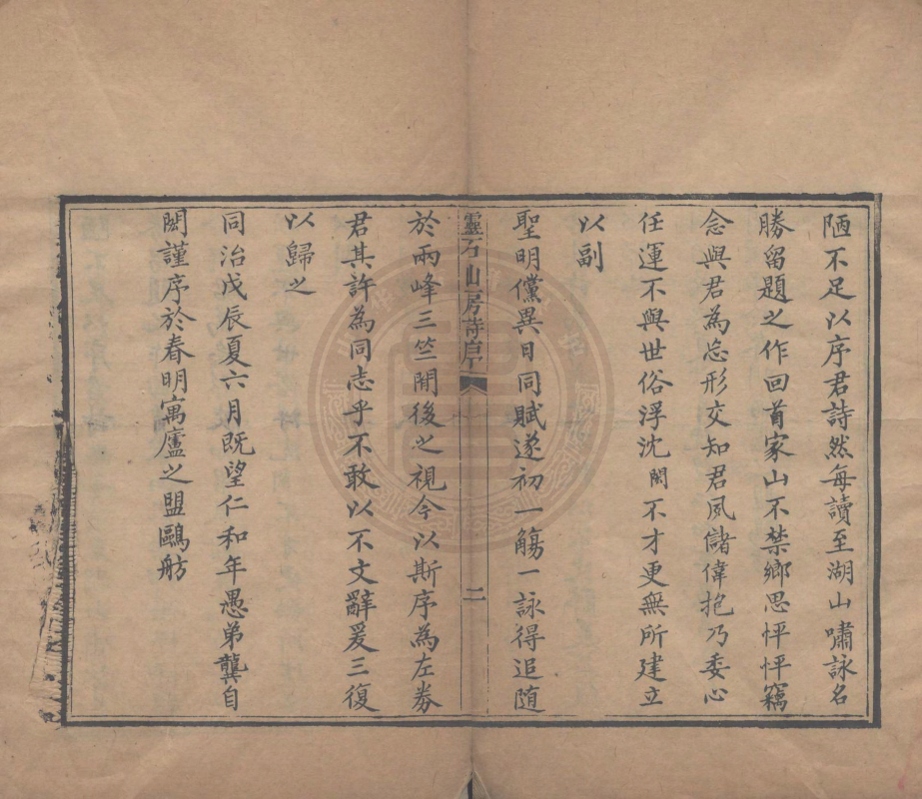 陋不足以序君詩然每讀至湖山嘯詠名
勝留題之作回首家山不禁鄉思怦怦竊
念與君為忘形交知君夙儲偉抱乃委心
任運不與世俗浮沈閎不才更無所建立
以副
聖明儻異日同賦遂初一觴一詠得追隨
靈石山房詩序
二
於兩峰三竺閒後之視今以斯序為左券
君其許為同志乎不敢以不文辭爰三復
以歸之
同治戊辰夏六月既望仁和年愚弟龔自
閎謹序於春明寓廬之盟鷗舫